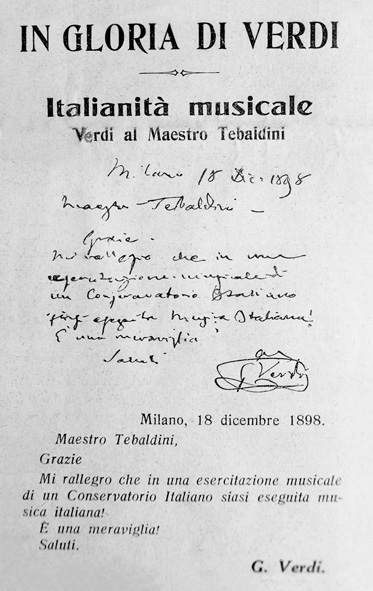 IN GLORIA DI VERDI
Italianità musicale
Verdi al Maestro Tebaldini
Milano 18 Dic. 1898
Maestro Tebaldini
Grazie.
Mi rallegro che in una
esercitazione musicale di
un Conservatorio Italiano
siasi eseguita Musica Italiana!
È una meraviglia!
Saluti
G. Verdi
Milano, 18 dicembre 1898.
Maestro Tebaldini,
Grazie
Mi rallegro che in una esercitazione musicale
di un Conservatorio Italiano siasi eseguita mu-
sica italiana!
È una meraviglia!
Saluti.
G. Verdi.